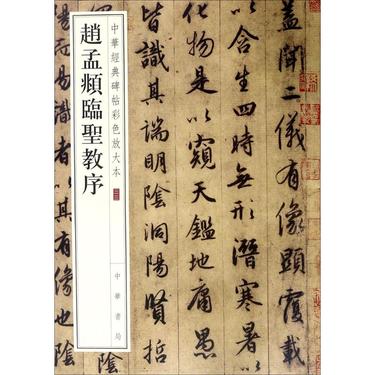 蓋聞二儀有像顯覆載
以含生四時無形潛寒暑以
化物是以窺天鑑地庸愚
皆識其端明陰洞陽賢哲
中華經典碑帖彩色放大本
趙孟頫臨聖教序
中華書局
識者以其有像也陰